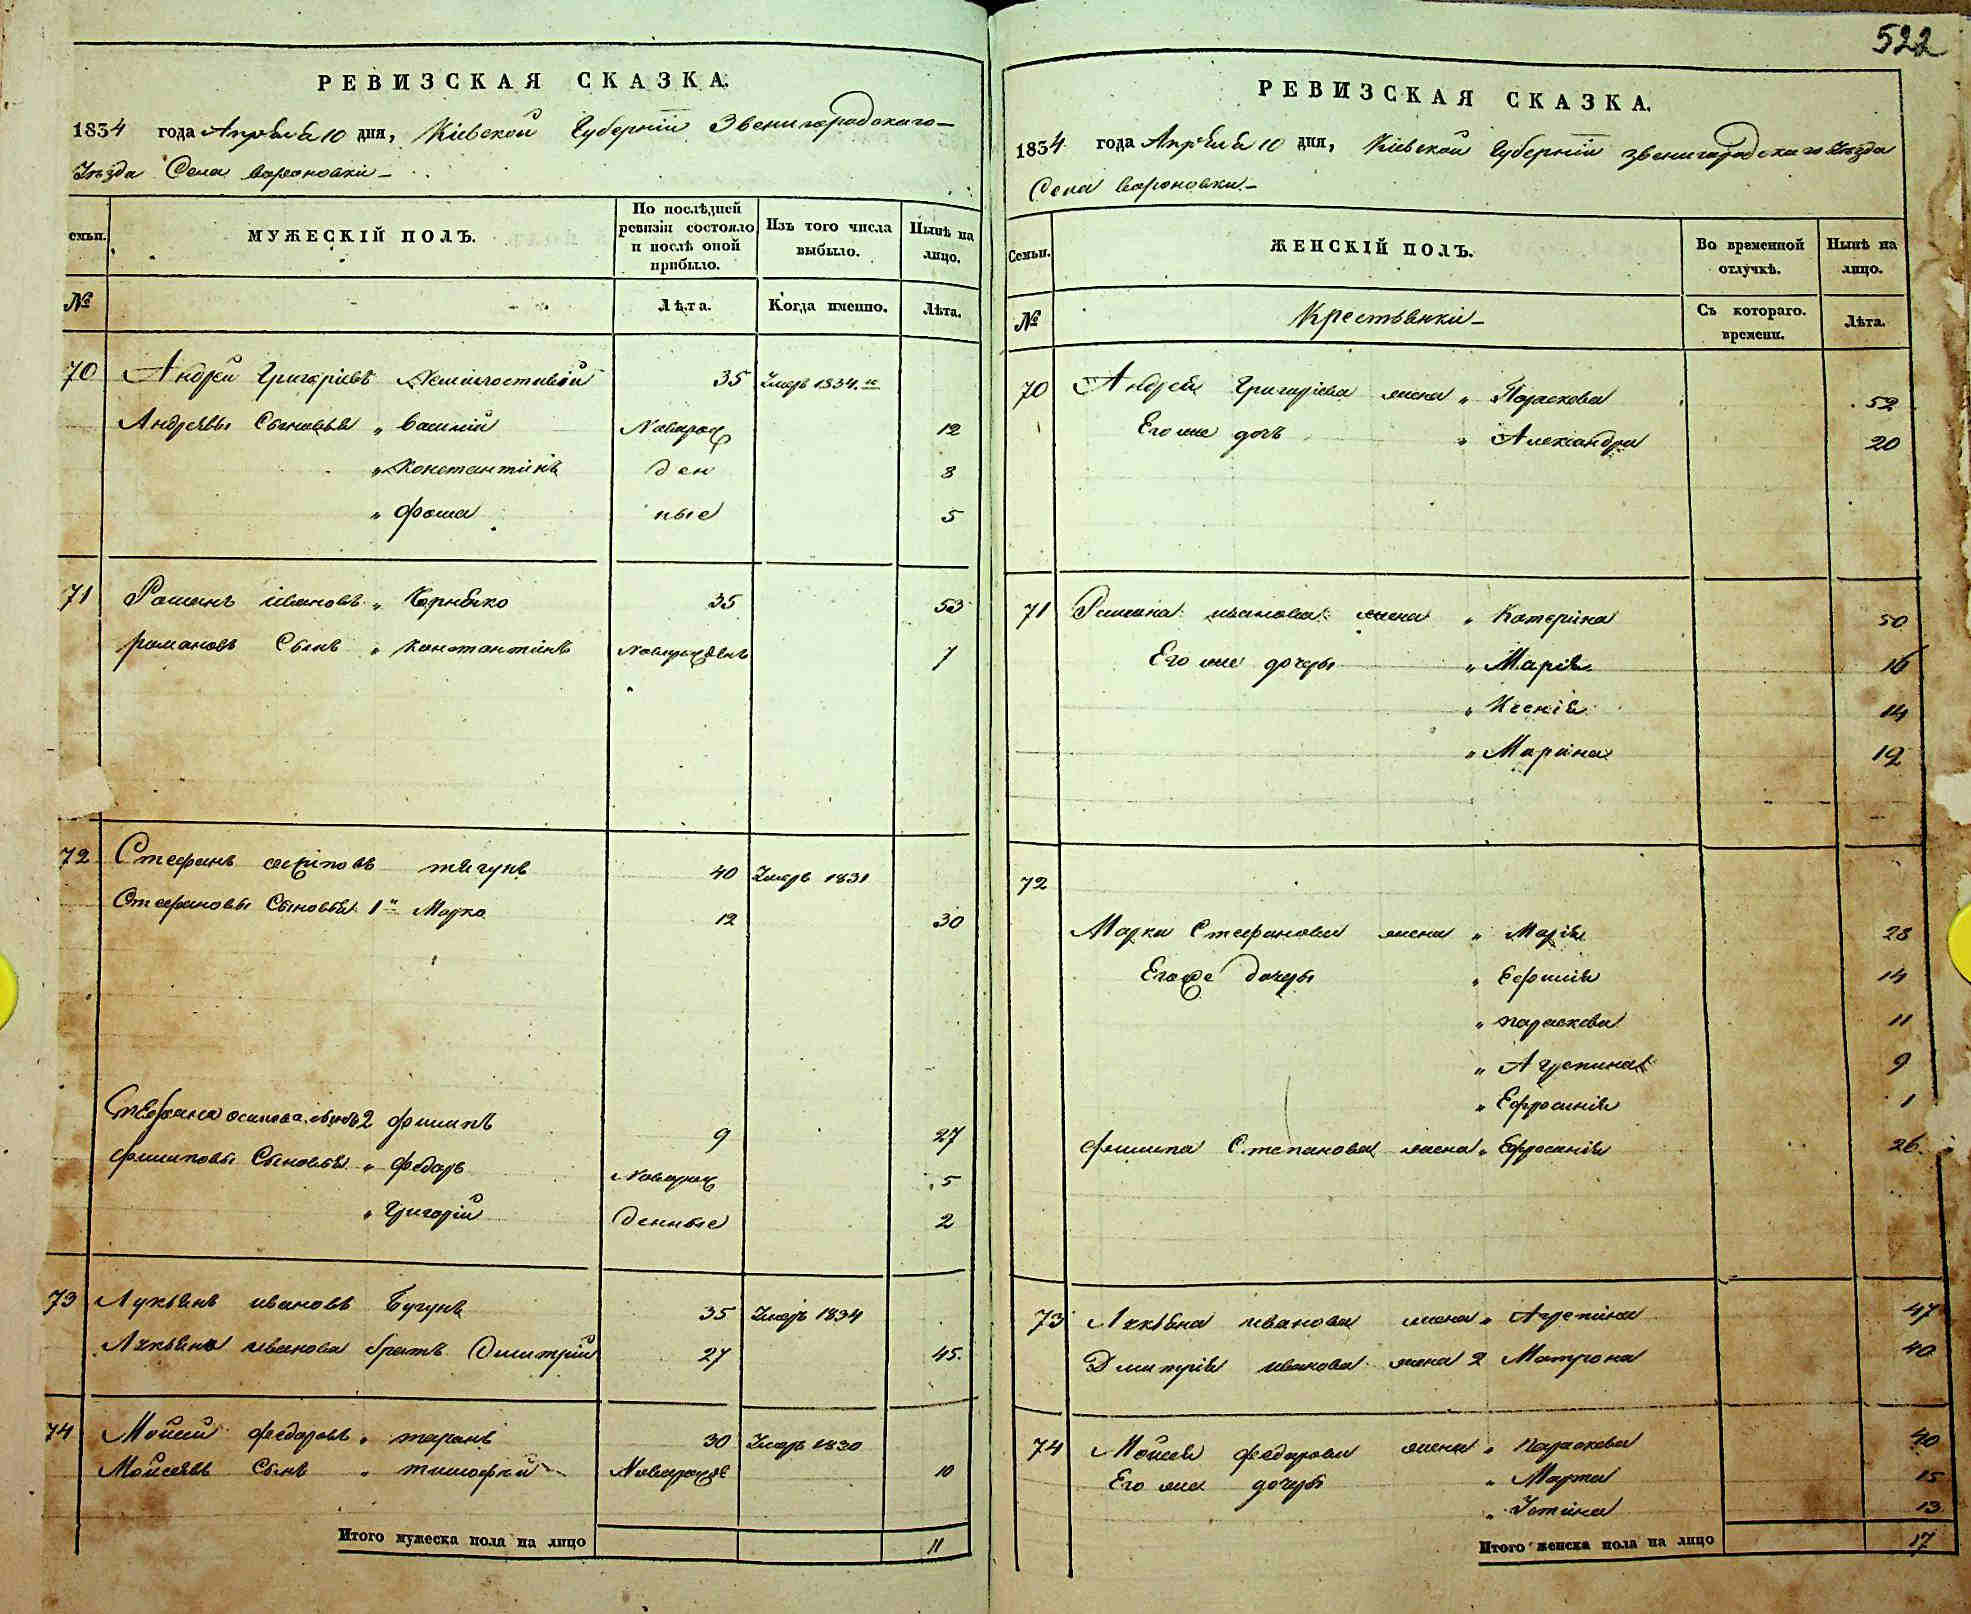 РЕВИЗСКАЯ СКАЗКА.
1834 года Апреля 10 дня, Кіевской Губерніи Звенигородскаго
Уезда Села Вороновки
семьи. МУЖЕСКІЙ ПОЛЪ. По послѣдней ревизіи состояло и послѣ оной прибыло. Изъ того числа выбыло. Нынѣ на лицо.
№ Лѣта. Когда именно. Лѣта.
70 Андрей Григоріевъ 35 Умеръ 1834.
Андреевы Сыновья „ Василій Новорож 12
„ Константинъ ден 3
„ Фома ные 5
71 Романъ Ивановъ „ 35 53
Романовъ Сынъ „ Константинъ Новорожденъ 7
72 Стефанъ Осиповъ Тягунъ 40 Умеръ 1831
Стефановы Сыновья 1й Марко 12 30
Стефана Осипова сынъ 2 Филипъ 9 27
Филиповы Сыновья „ Федоръ Новорож 5
„ Григорій денные 2
73 Лукьянъ Ивановъ Бугунъ 35 Умеръ 1834
Лукьяна Иванова братъ Дмитрій 27 45.
74 Мойсей Федоровъ „ Таранъ 30 Умеръ 1830
Мойсеевъ Сынъ „ Тимофей Новорожде 10
Итого мужеска пола на лицо 11
522
РЕВИЗСКАЯ СКАЗКА.
1834 года Апреля 10 дня, Кіевской Губерніи Звенигородскаго Уезда
Села Вороновки
Семьи. ЖЕНСКІЙ ПОЛЪ. Во временной отлучкѣ. Нынѣ на лицо.
№ Крестьянки Съ котораго. времени. Лѣта.
70 Андрея Григоріева жена „ Параскева 52
Его же дочь „ Александра 20
71 Романа Иванова жена „ Катерина 50
Его же дочеры „ Марія 16
„ Ксенія 14
„ Марина 12
72
Марка Стефанова жена „ Марія 28
Егоже дочеры „ Ефимія 14
„ Параскева 11
„ Агрепина 9
„ Ефросинія 1
Филипа Степанова жена „ Ефросинія 26
73 Лукьяна Иванова жена „ Агрепина 47
Дмитрія Иванова жена 2 Матрона 40
74 Мойсея Федорова жена „ Параскева 40
Его же дочеры „ Марта 15
„ Устина 13
Итого женска пола на лицо 17